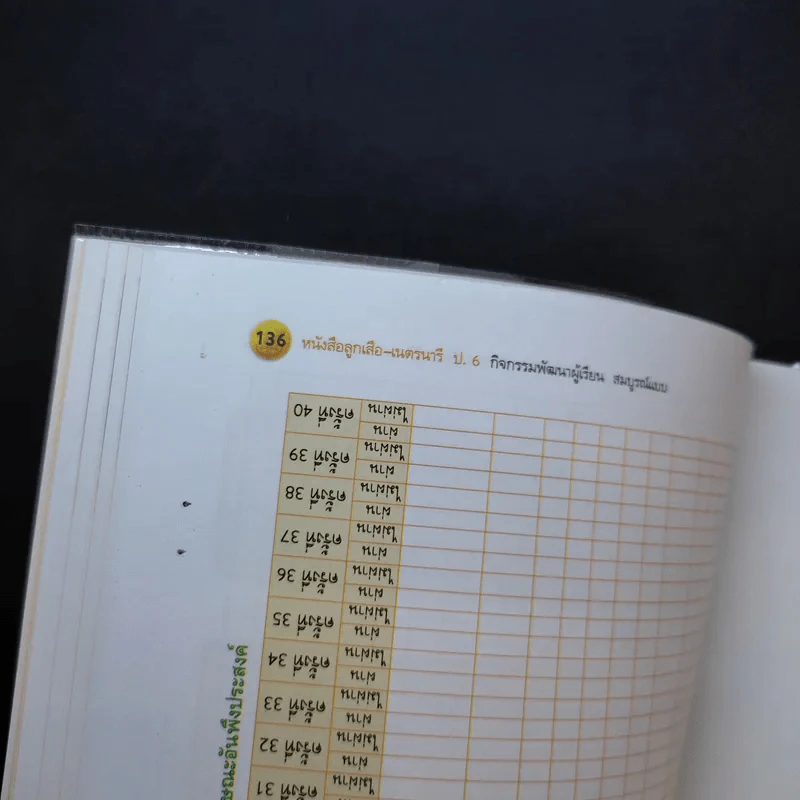 136 หนังสือลูกเสือ-เนตรนารี ป. 6 กิจกรรมพัฒนาผู้เรียน สมบูรณ์แบบ
ครั้งที่ 40
ไม่ผ่าน
ผ่าน
ครั้งที่ 39
ไม่ผ่าน
ผ่าน
ครั้งที่ 38
ไม่ผ่าน
ผ่าน
ครั้งที่ 37
ไม่ผ่าน
ผ่าน
ครั้งที่ 36
ไม่ผ่าน
ผ่าน
ครั้งที่ 35
ไม่ผ่าน
ผ่าน
ครั้งที่ 34
ไม่ผ่าน
ผ่าน
ครั้งที่ 33
ไม่ผ่าน
ผ่าน
ครั้งที่ 32
ไม่ผ่าน
ผ่าน
ครั้งที่ 31
ไม่ผ่าน
ษณะอันพึงประสงค์